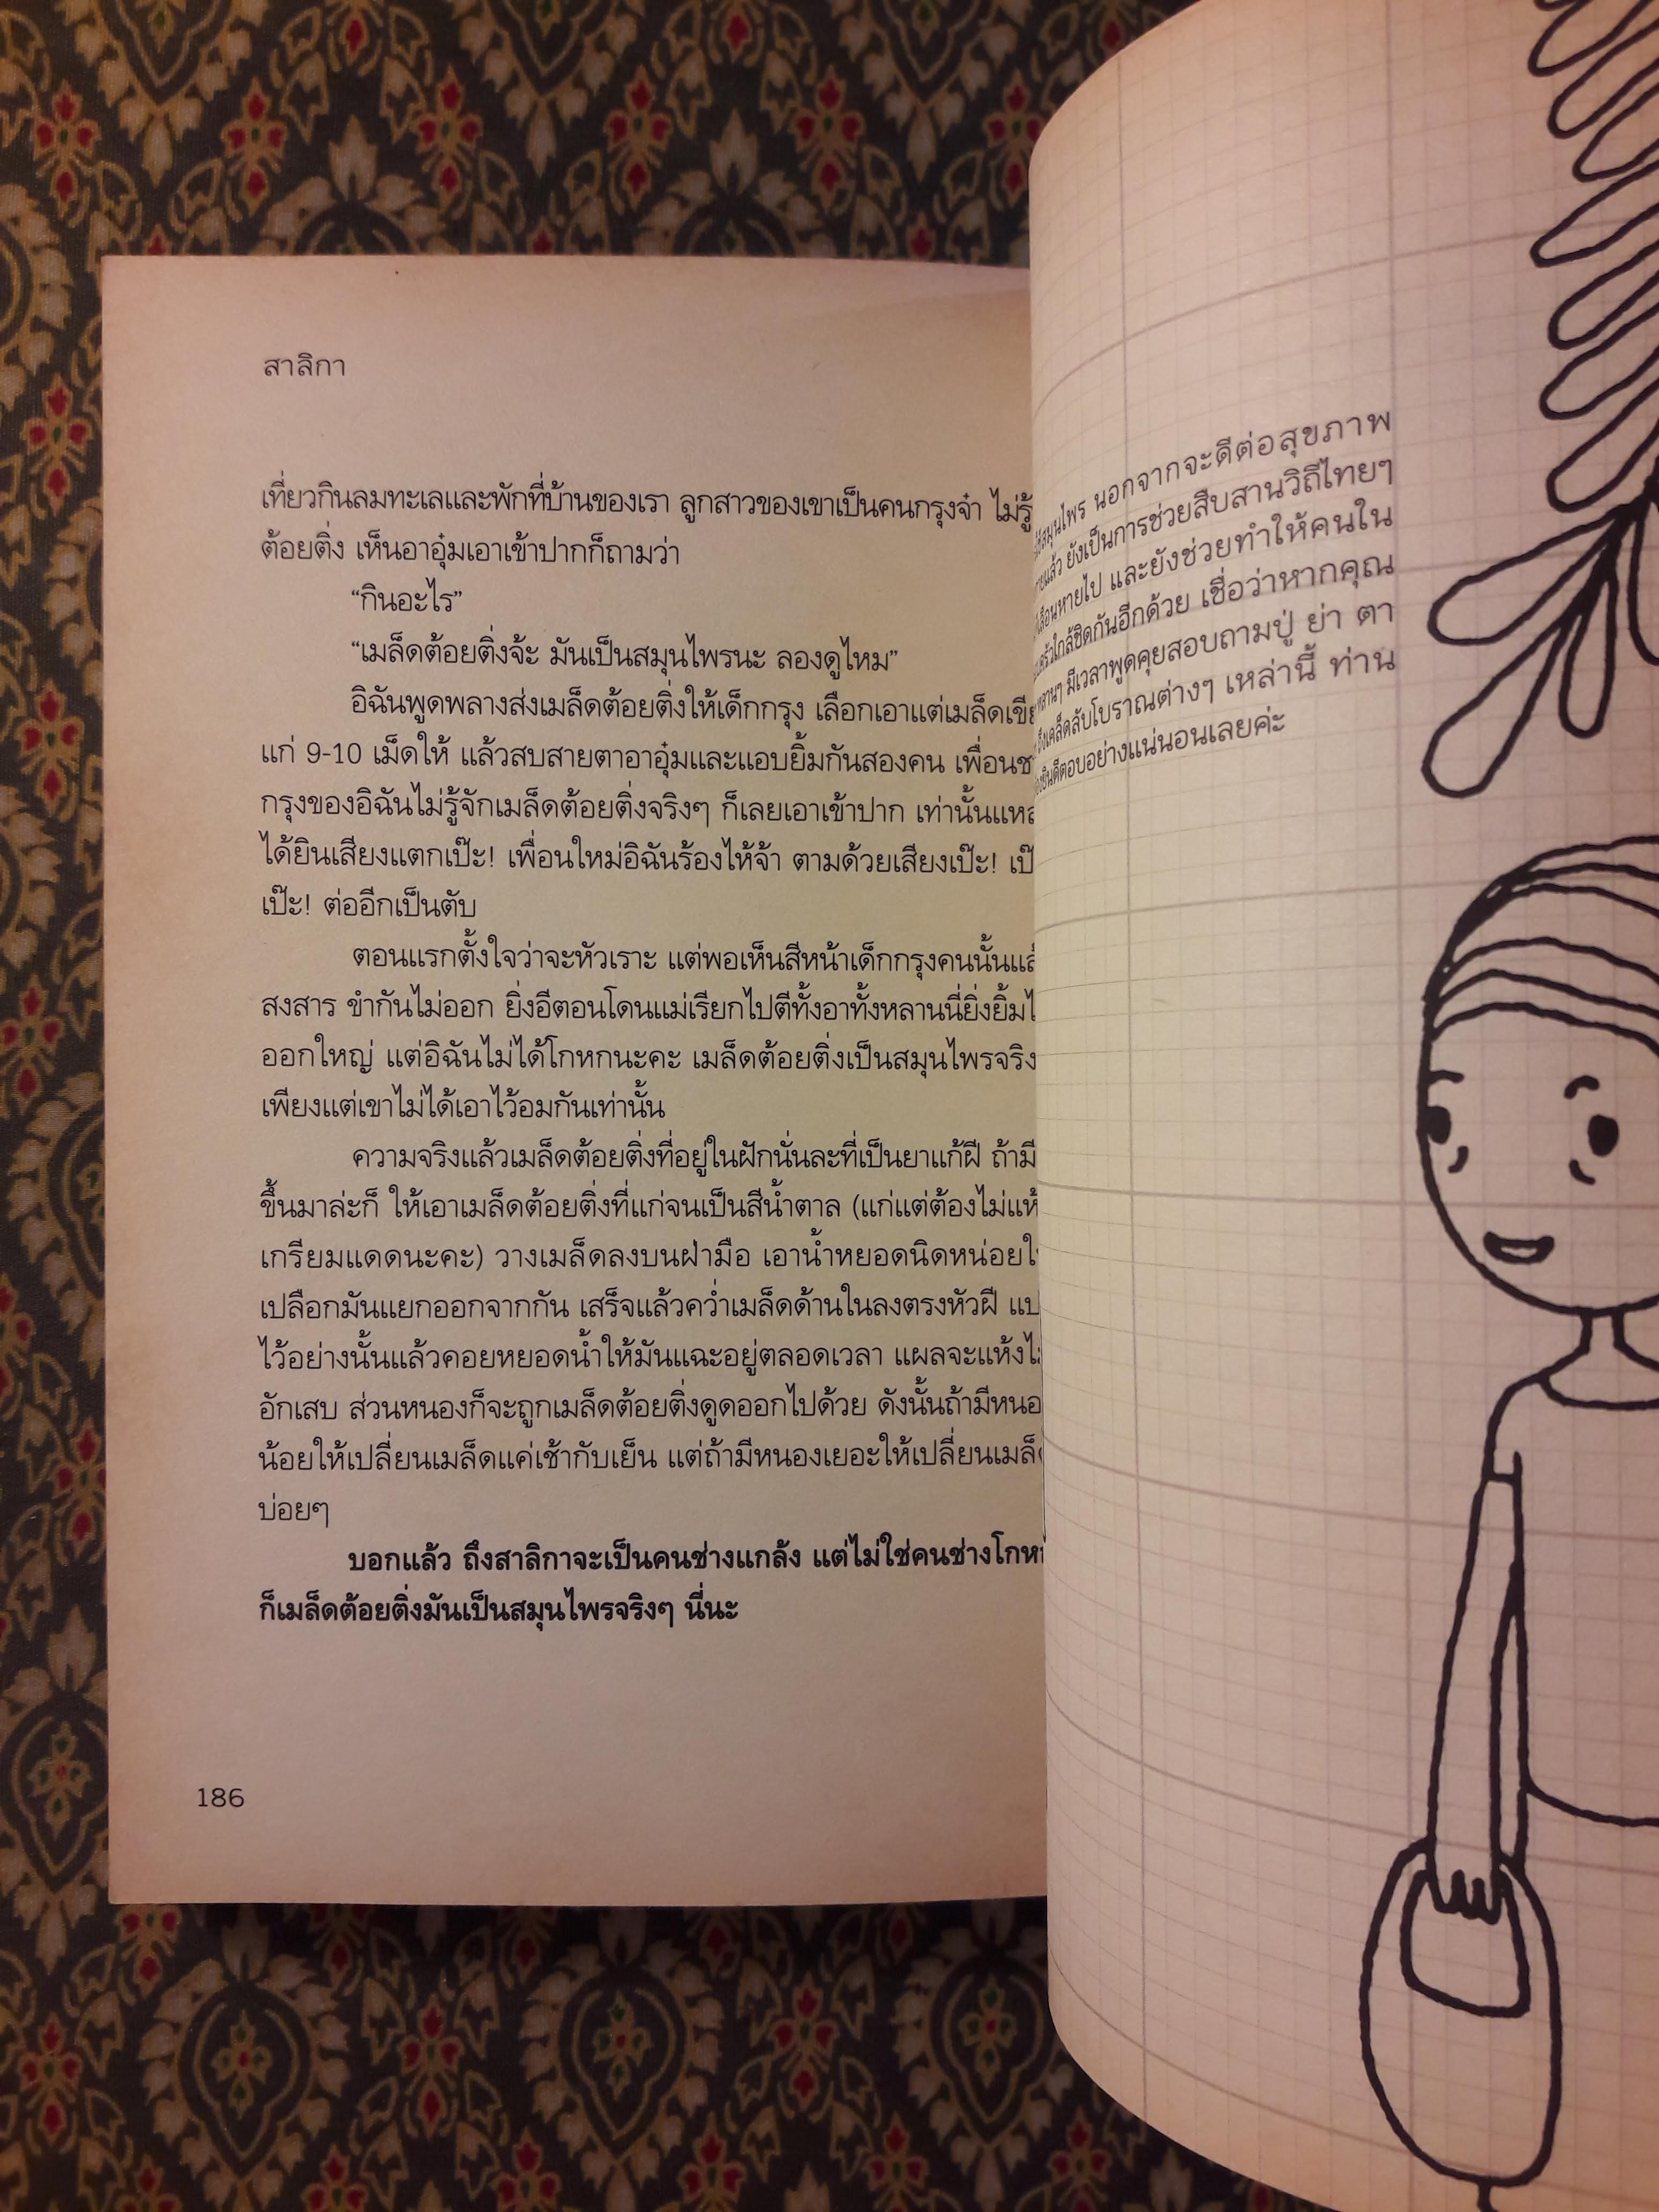 สาลิกา
เที่ยวกินลมทะเลและพักที่บ้านของเรา ลูกสาวของเขาเป็นคนกรุงจ๋า ไม่รู้
ต้อยติ่ง เห็นอาอุ๋มเอาเข้าปากก็ถามว่า
“กินอะไร”
“เมล็ดต้อยติ่งจ้ะ มันเป็นสมุนไพรนะ ลองดูไหม”
อิฉันพูดพลางส่งเมล็ดต้อยติ่งให้เด็กกรุง เลือกเอาแต่เมล็ด
แก่ 9-10 เม็ดให้ แล้วสบสายตาอาอุ๋มและแอบยิ้มกันสองคน
กรุงของอิฉันไม่รู้จักเมล็ดต้อยติ่งจริงๆ ก็เลยเอาเข้าปาก
ได้ยินเสียงแตกเป๊ะ! เพื่อนใหม่อิฉันร้องไห้จ้า ตามด้วยเสียงเป๊ะ!
เป๊ะ! ต่ออีกเป็นตับ
ตอนแรกตั้งใจว่าจะหัวเราะ แต่พอเห็นสีหน้าเด็กกรุงคนนั้น
สงสาร ขำกันไม่ออก ยิ่งอีตอนโดนแม่เรียกไปตีทั้งอาทั้งหลานนี่ยิ่งยิ้ม
ออกใหญ่ แต่อิฉันไม่ได้โกหกนะคะ เมล็ดต้อยติ่งเป็นสมุนไพรจริง
เพียงแต่เขาไม่ได้เอาไว้อมกันเท่านั้น
ความจริงแล้วเมล็ดต้อยติ่งที่อยู่ในฝักนั่นละที่เป็นยาแก้ฝี ถ้ามี
ขึ้นมาล่ะก็ ให้เอาเมล็ดต้อยติ่งที่แก่จนเป็นสีน้ำตาล (แก่แต่ต้องไม่
เกรียมแดดนะคะ) วางเมล็ดลงบนฝ่ามือ เอาน้ำหยอดนิดหน่อย
เปลือกมันแยกออกจากกัน เสร็จแล้วคว่ำเมล็ดด้านในลงตรงหัวฝี
ไว้อย่างนั้นแล้วคอยหยอดน้ำให้มันแฉะอยู่ตลอดเวลา แผลจะแห้ง
อักเสบ ส่วนหนองก็จะถูกเมล็ดต้อยติ่งดูดออกไปด้วย ดังนั้นถ้ามี
น้อยให้เปลี่ยนเมล็ดแค่เช้ากับเย็น แต่ถ้ามีหนองเยอะให้เปลี่ยน
บ่อยๆ
บอกแล้ว ถึงสาลิกาจะเป็นคนช่างแกล้ง แต่ไม่ใช่คนช่าง
ก็เมล็ดต้อยติ่งมันเป็นสมุนไพรจริงๆ นี่นะ
186
นอกจากจะดีต่อสุขภาพ
ยังเป็นการช่วยสืบสานวิถีไทยๆ
และยังช่วยทำให้คนใน
ใกล้ชิดกันอีกด้วย เชื่อว่าหากคุณ
มีเวลาพูดคุยสอบถามปู่ ย่า ตา
เคล็ดลับโบราณต่างๆ เหล่านี้ ท่าน
ตอบอย่างแน่นอนเลยค่ะ